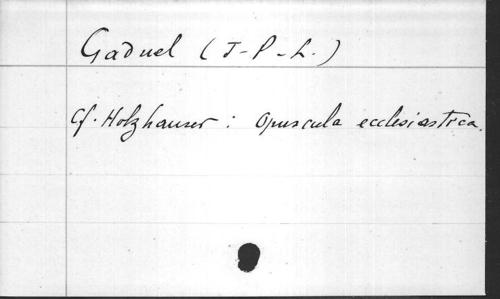 Gaduel (J-P-L.)
Cf. Holzhauser : Opuscula ecclesiastica.